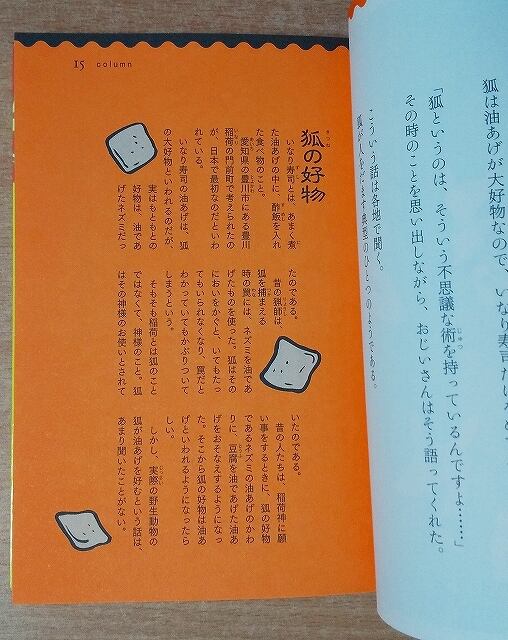 狐は油あげが大好物なので、いなり寿司
「狐というのは、そういう不思議な術を持っているんですよ……」
その時のことを思い出しながら、おじいさんはそう語ってくれた。
こういう話は各地で聞く。
狐が人をだます典型のひとつのようである。
15 column
狐の好物
いなり寿司とは、あまく煮
た油あげの中に、酢飯を入れ
た食べ物のこと。
愛知県の豊川市にある豊川
稲荷の門前町で考えられたの
が、日本で最初なのだといわ
れている。
いなり寿司の油あげは、狐
の大好物といわれるのだが、
実はもともとの
好物は、油であ
げたネズミだっ
たのである。
昔の猟師は、
狐を捕まえる
時の罠には、ネズミを油であ
げたものを使った。狐はその
においをかぐと、いてもたっ
てもいられなくなり、罠だと
わかっていてもかぶりついて
しまうという。
そもそも稲荷とは狐のこと
ではなくて、神様のこと。狐
はその神様のお使いとされて
いたのである。
昔の人たちは、稲荷神に願
い事をするときに、狐の好物
であるネズミの油あげのかわ
りに、豆腐を油であげた油あ
げをおそなえするようになっ
た。そこから狐の好物は油あ
げといわれるようになったら
しい。
しかし、実際の野生動物の
狐が油あげを好むという話は、
あまり聞いたことがない。